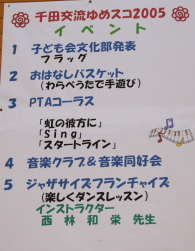 千田交流ゆめスコ2005
イベント
1 子ども会文化部発表
フラッグ
2 おはなしバスケット
(わらべうたで手遊び)
3 PTAコーラス
「虹の彼方に」
「Sing」
「スタートライン」
4 音楽クラブ&音楽同好会
5 ジャザサイズフランチャイズ
(楽しくダンスレッスン)
インストラクター
西林和栄 先生